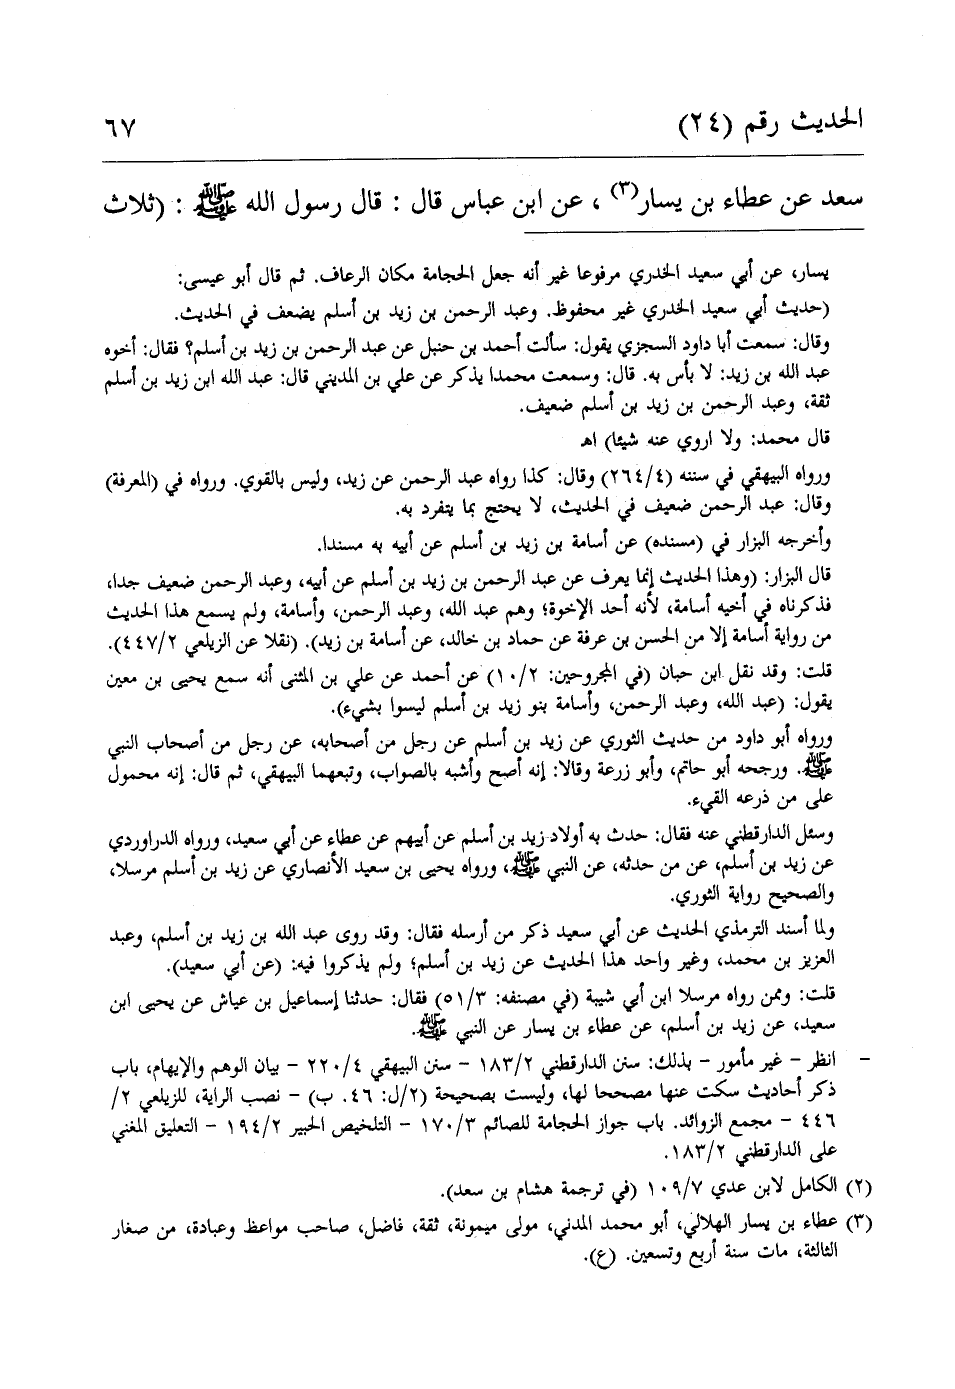 الحديث رقم (٢٤)
٦٧
سعد عن عطاء بن يسار(٣) ، عن ابن عباس قال : قال رسول الله ﷺ : (ثلاث
يسار، عن أبي سعيد الخدري مرفوعا غير أنه جعل الحجامة مكان الرعاف. ثم قال أبو عيسى:
(حديث أبي سعيد الخدري غير محفوظ. وعبد الرحمن بن زيد بن أسلم يضعف في الحديث.
وقال: سمعت أبا داود السجزي يقول: سألت أحمد بن حنبل عن عبد الرحمن بن زيد بن أسلم؟ فقال: أخوه
عبد الله بن زيد: لا بأس به. قال: وسمعت محمدا يذكر عن علي بن المديني قال: عبد الله ابن زيد بن أسلم
ثقة، وعبد الرحمن بن زيد بن أسلم ضعيف.
قال محمد: ولا اروي عنه شيئا) اهـ
ورواه البيهقي في سننه (٢٦٤/٤) وقال: كذا رواه عبد الرحمن عن زيد، وليس بالقوي. ورواه في (المعرفة)
وقال: عبد الرحمن ضعيف في الحديث، لا يحتج بما يتفرد به.
وأخرجه البزار في (مسنده) عن أسامة بن زيد بن أسلم عن أبيه به مسندا.
قال البزار: (وهذا الحديث إنما يعرف عن عبد الرحمن بن زيد بن أسلم عن أبيه، وعبد الرحمن ضعيف جدا،
فذكرناه في أخيه أسامة، لأنه أحد الإخوة؛ وهم عبد الله، وعبد الرحمن، وأسامة، ولم يسمع هذا الحديث
من رواية أسامة إلا من الحسن بن عرفة عن حماد بن خالد، عن أسامة بن زيد). (نقلا عن الزيلعي ٤٤٧/٢).
قلت: وقد نقل ابن حبان (في المجروحين: ١٠/٢) عن أحمد عن علي بن المثنى أنه سمع يحيى بن معين
يقول: (عبد الله، وعبد الرحمن، وأسامة بنو زيد بن أسلم ليسوا بشيء).
ورواه أبو داود من حديث الثوري عن زيد بن أسلم عن رجل من أصحابه، عن رجل من أصحاب النبي
ﷺ. ورجحه أبو حاتم، وأبو زرعة وقالا: إنه أصح وأشبه بالصواب، وتبعهما البيهقي، ثم قال: إنه محمول
على من ذرعه القيء.
وسئل الدارقطني عنه فقال: حدث به أولاد زيد بن أسلم عن أبيهم عن عطاء عن أبي سعيد، ورواه الدراوردي
عن زيد بن أسلم، عن من حدثه، عن النبي ﷺ، ورواه يحيى بن سعيد الأنصاري عن زيد بن أسلم مرسلا،
والصحيح رواية الثوري.
ولما أسند الترمذي الحديث عن أبي سعيد ذكر من أرسله فقال: وقد روى عبد الله بن زيد بن أسلم، وعبد
العزيز بن محمد، وغير واحد هذا الحديث عن زيد بن أسلم؛ ولم يذكروا فيه: (عن أبي سعيد).
قلت: وممن رواه مرسلا ابن أبي شيبة (في مصنفه: ٥١/٣) فقال: حدثنا إسماعيل بن عياش عن يحيى ابن
سعيد، عن زيد بن أسلم، عن عطاء بن يسار عن النبي ﷺ.
- انظر - غير مأمور - بذلك: سنن الدارقطني ١٨٣/٢ - سنن البيهقي ٢٢٠/٤ - بيان الوهم والإيهام، باب
ذكر أحاديث سكت عنها مصححا لها، وليست بصحيحة (٢/ل: ٤٦. ب) - نصب الراية، للزيلعي ٢/
٤٤٦ - مجمع الزوائد. باب جواز الحجامة للصائم ١٧٠/٣ - التلخيص الحبير ١٩٤/٢ - التعليق المغني
على الدارقطني ١٨٣/٢.
(٢) الكامل لابن عدي ١٠٩/٧ (في ترجمة هشام بن سعد).
(٣) عطاء بن يسار الهلالي، أبو محمد المدني، مولى ميمونة، ثقة، فاضل، صاحب مواعظ وعبادة، من صغار
الثالثة، مات سنة أربع وتسعين. (ع).